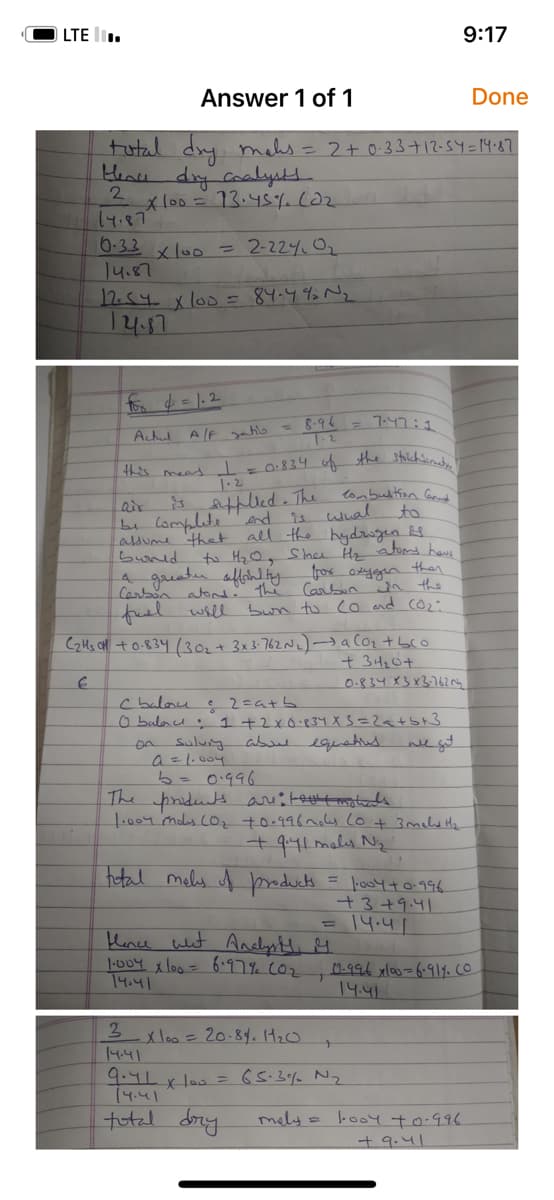 LTE
9:17
Answer 1 of 1
Done
total dry mols = 2 + 0.33 + 12.54 = 14.87
Hence dry analysis
2/14.87 x 100 = 13.45% CO2
0.33/14.87 x 100 = 2.22% O2
12.54/14.87 x 100 = 84.4% N2
for ϕ = 1.2
Actual A/F ratio = 8.96/1.2 = 7.47:1
this means 1/1.2 = 0.834 of the stoichiometric
air is supplied. The combustion cannot
be complete and is usual to
assume that all the hydrogen is
burned to H2O, since H2 atoms have
a greater affinity for oxygen than
Carbon atoms. The Carbon in the
fuel will burn to CO and CO2:
C2H5OH + 0.834 (3O2 + 3x3.762N2) → a CO2 + b CO
+ 3H2O +
0.834 x 3 x 3.762 N2
C balance : 2 = a + b
O balance : 1 + 2 x 0.834 x 3 = 2a + b + 3
on solving above equations we get
a = 1.004
b = 0.996
The products are:
1.004 mols CO2 + 0.996 mols CO + 3 mols H2
+ 9.41 moles N2
total mols of products = 1.004 + 0.996
+ 3 + 9.41
= 14.41
Hence wet Analysis is
1.004/14.41 x 100 = 6.97% CO2 , 0.996/14.41 x 100 = 6.91% CO
3/14.41 x 100 = 20.8% H2O ,
9.41/14.41 x 100 = 65.3% N2
total dry mols = 1.004 + 0.996
+ 9.41